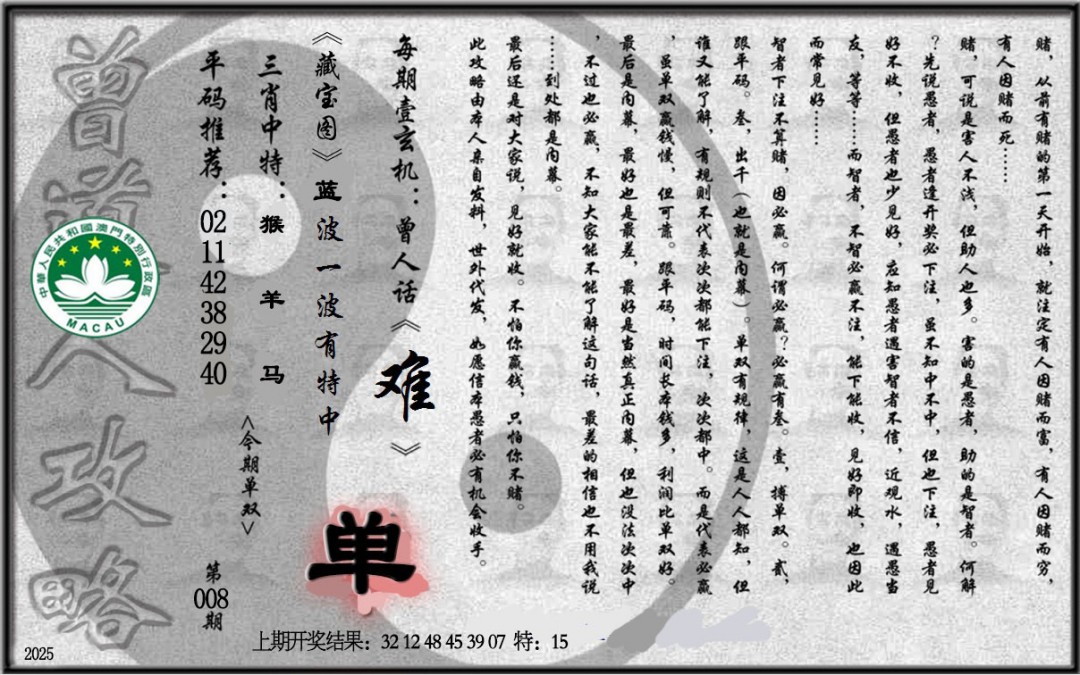 赌，从前有赌的第一天开始，就注定有人因赌而富，有人因赌而穷，
有人因赌而死……
赌，可说是害人不浅，但助人也多。害的是愚者，助的是智者。何解
？先说愚者，愚者逢开奖必下注，虽不知中不中，但也下注，愚者见
好不收，但愚者也少见好，应知愚者遇害智者不信，近观水，遇愚当
友，等等……而智者，不智必赢不注，能下能收，见好即收，也因此
而常见好……
智者下注不算赌，因必赢。何谓必赢？必赢有叁。壹，搏单双。贰，
跟平码。叁，出千（也就是内幕）。单双有规律，这是人人都知，但
谁又能了解，有规则不代表次次都能下注，次次都中。而是代表必赢
，虽单双赢钱慢，但可靠。跟平码，时间长本钱多，利润比单双好。
最后是内幕，最好也是最差，最好是当然真正内幕，但也没法次次中
，不过也必赢，不知大家能不能了解这句话，最差的相信也不用我说
……到处都是内幕。
最后还是对大家说，见好就收。不怕你赢钱，只怕你不赌。
此攻略由本人亲自发料，世外代发，如愿信本愚者必有机会收手。
每期壹玄机：曾人话《难》
《藏宝图》蓝波一波有特中
单
三肖中特：猴羊马
<今期单双>
平码推荐：02 11 42 38 29 40
第008期
曾道人攻略
中華人民共和國澳門特別行政區
MACAU
2025
上期开奖结果：32 12 48 45 39 07 特：15